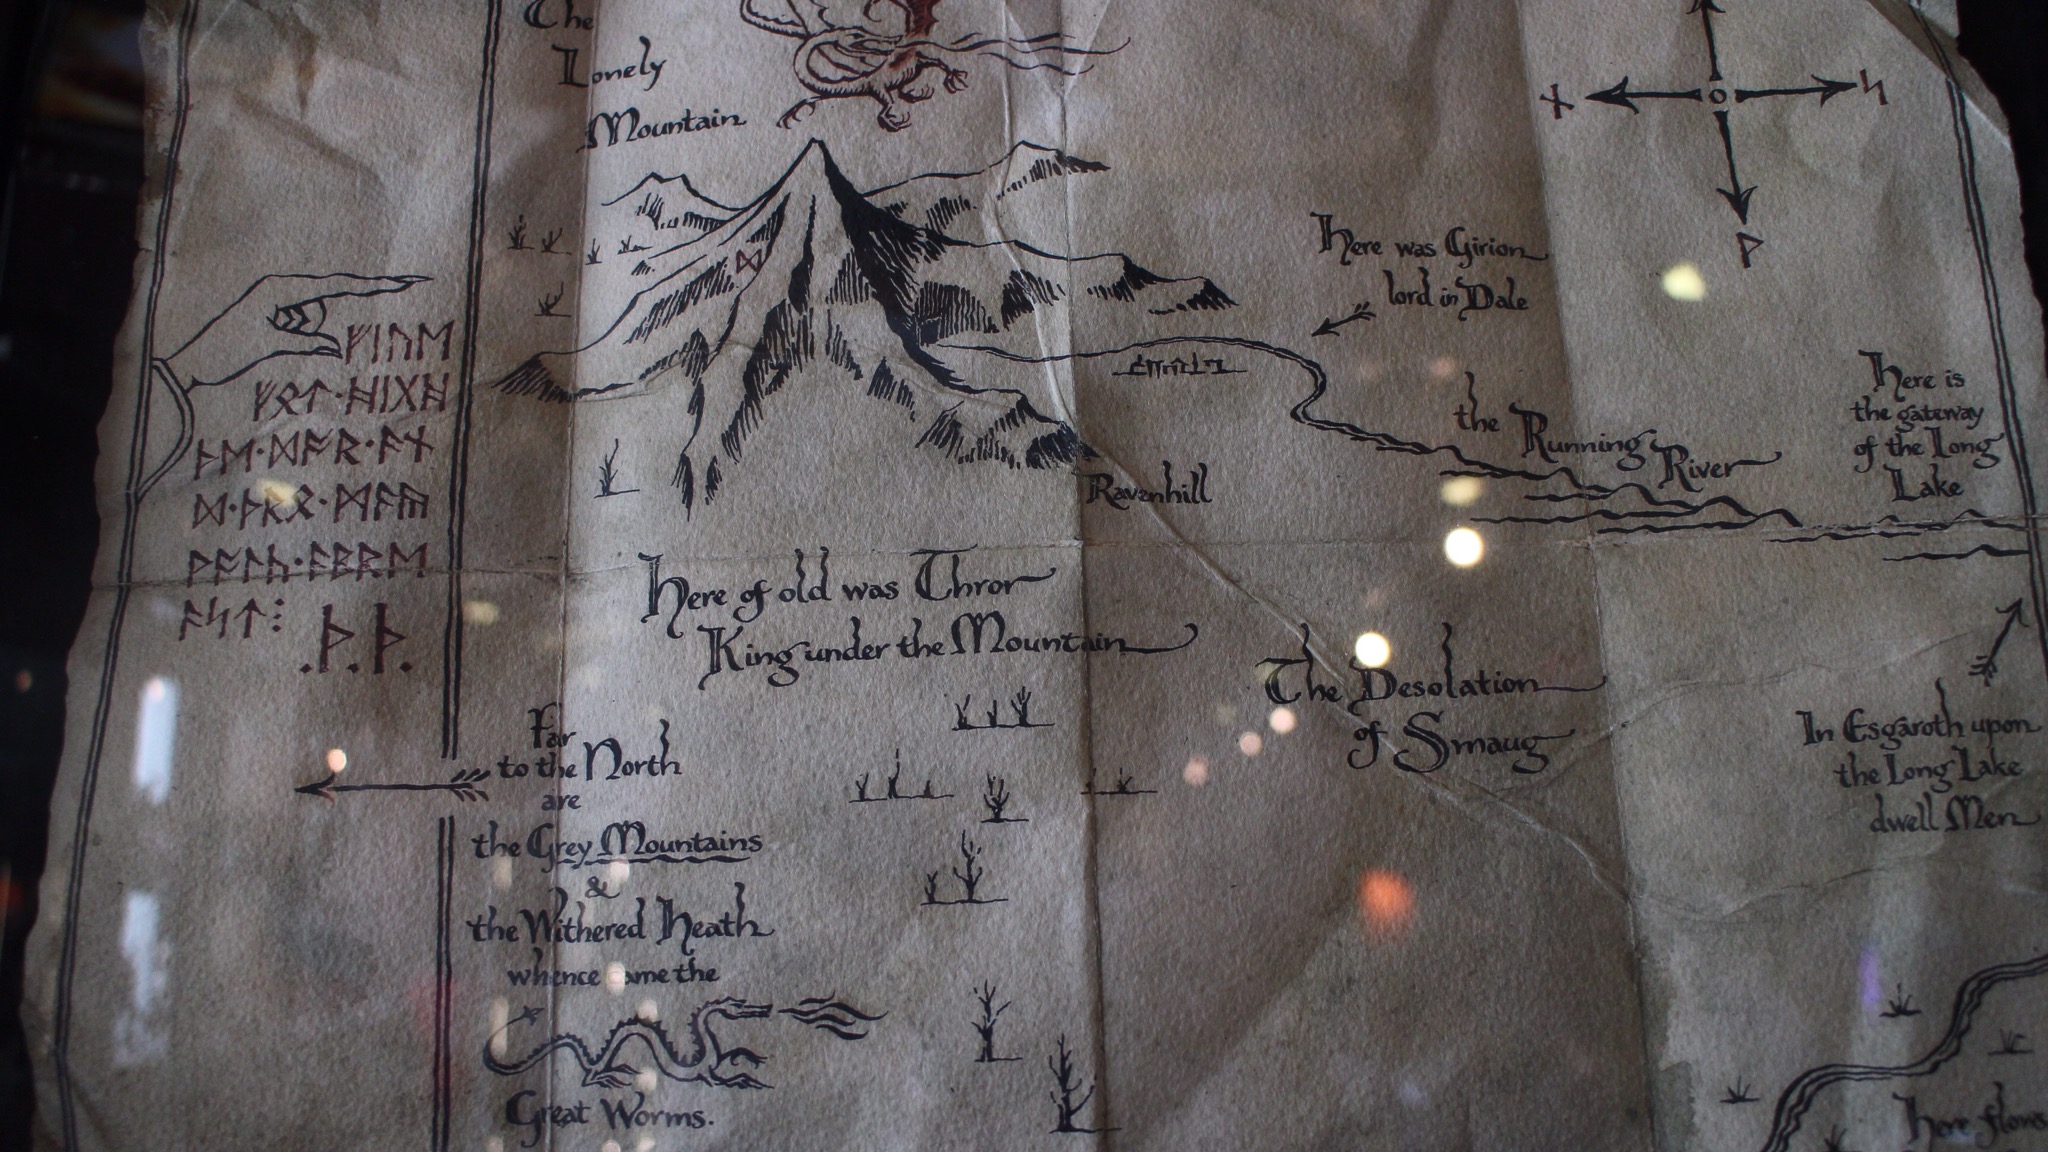 The
Lonely
Mountain
ᚾ
ᛋ
ᚹ
ᛞ
Here was Girion
lord in Dale
ᚠᛁᚢᛖ
ᚠᛟᛏ·ᚻᛁᚷᚻ
ᚦᛖ·ᛞᚩᚱ·ᚪᚾ
ᛞ·ᚦᚱᛟ·ᛗᚪᚣ
ᚹᚪᛚᚳ·ᚪᛒᚱᛖ
ᚪᛋᛏ⁝
.ᚦ.ᚦ.
the Running River
Here is
the gateway
of the Long
Lake
Ravenhill
Here of old was Thror
King under the Mountain
The Desolation
of Smaug
Far
to the North
are
the Grey Mountains
&
the Withered Heath
whence came the
Great Worms.
In Esgaroth upon
the Long Lake
dwell Men
Here flows